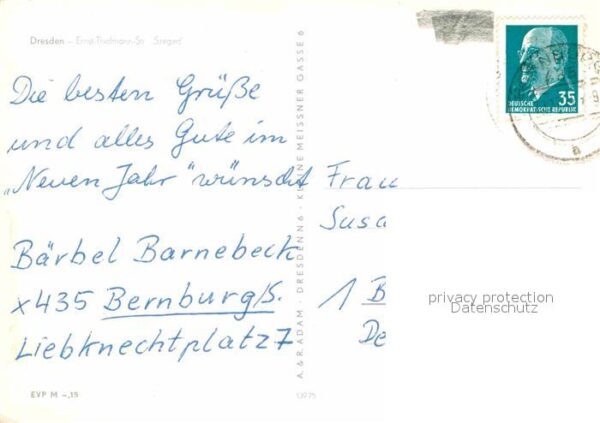 Dresden - Ernst-Thälmann-Str. "Szeged"
Die besten Grüße
und alles Gute im
„Neuen Jahr" wünscht
Bärbel Barnebeck
x435 Bernburg/S.
Liebknechtplatz 7
EVP M -,15
A. & R. ADAM · DRESDEN N 6 · KLEINE MEISSNER GASSE 6
13975
35
DEUTSCHE
DEMOKRATISCHE REPUBLIK
Frau
Susa
1 B
De
privacy protection
Datenschutz